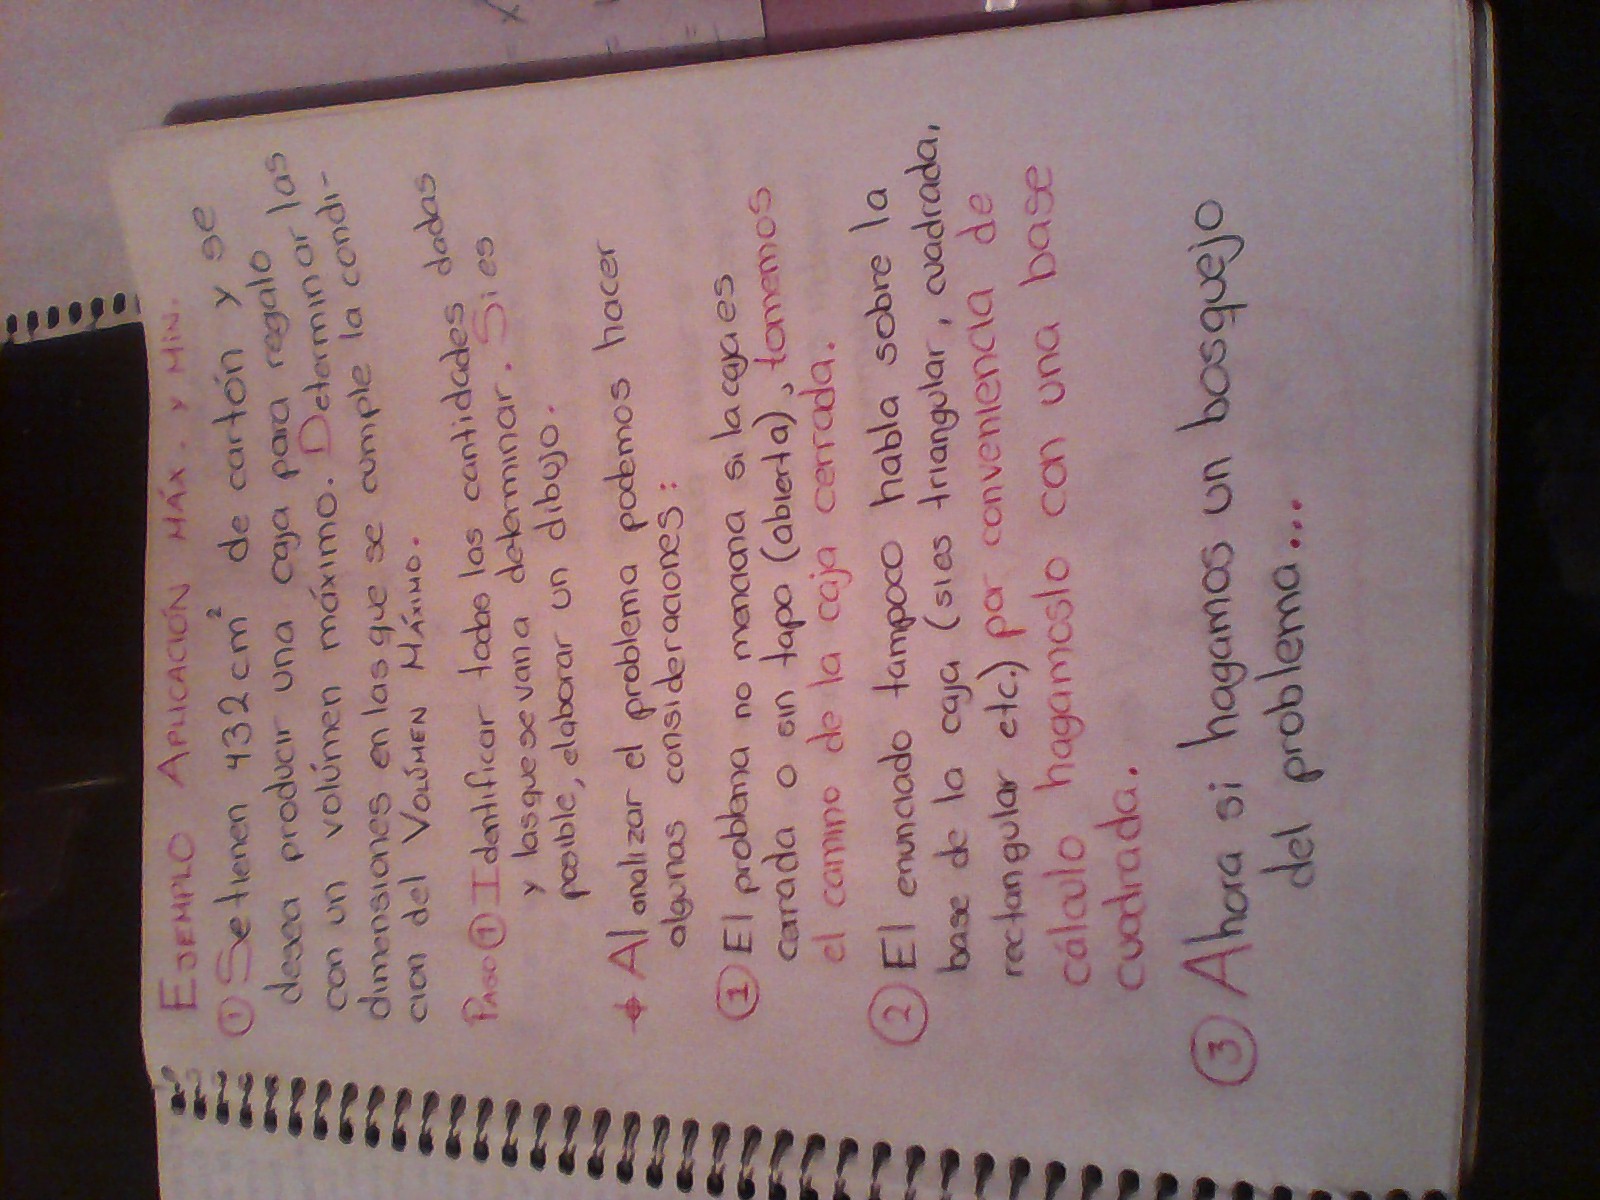 EJEMPLO APLICACIÓN MÁX. Y MÍN.
① Se tienen 432 cm² de cartón y se
desea producir una caja para regalo
con un volúmen máximo. Determinar las
dimensiones en las que se cumple la condi-
cion del VOLÚMEN MÁXIMO.
PASO ① Identificar todas las cantidades dadas
y las que se van a determinar. Si es
posible, elaborar un dibujo.
Al analizar el problema podemos hacer
algunas consideraciones:
① El problema no menciona si la caja es
cerrada o sin tapa (abierta), tomemos
el camino de la caja cerrada.
② El enunciado tampoco habla sobre la
base de la caja (si es triangular, cuadrada,
rectangular etc.) por conveniencia de
cálculo hagamoslo con una base
cuadrada.
③ Ahora si hagamos un bosquejo
del problema...